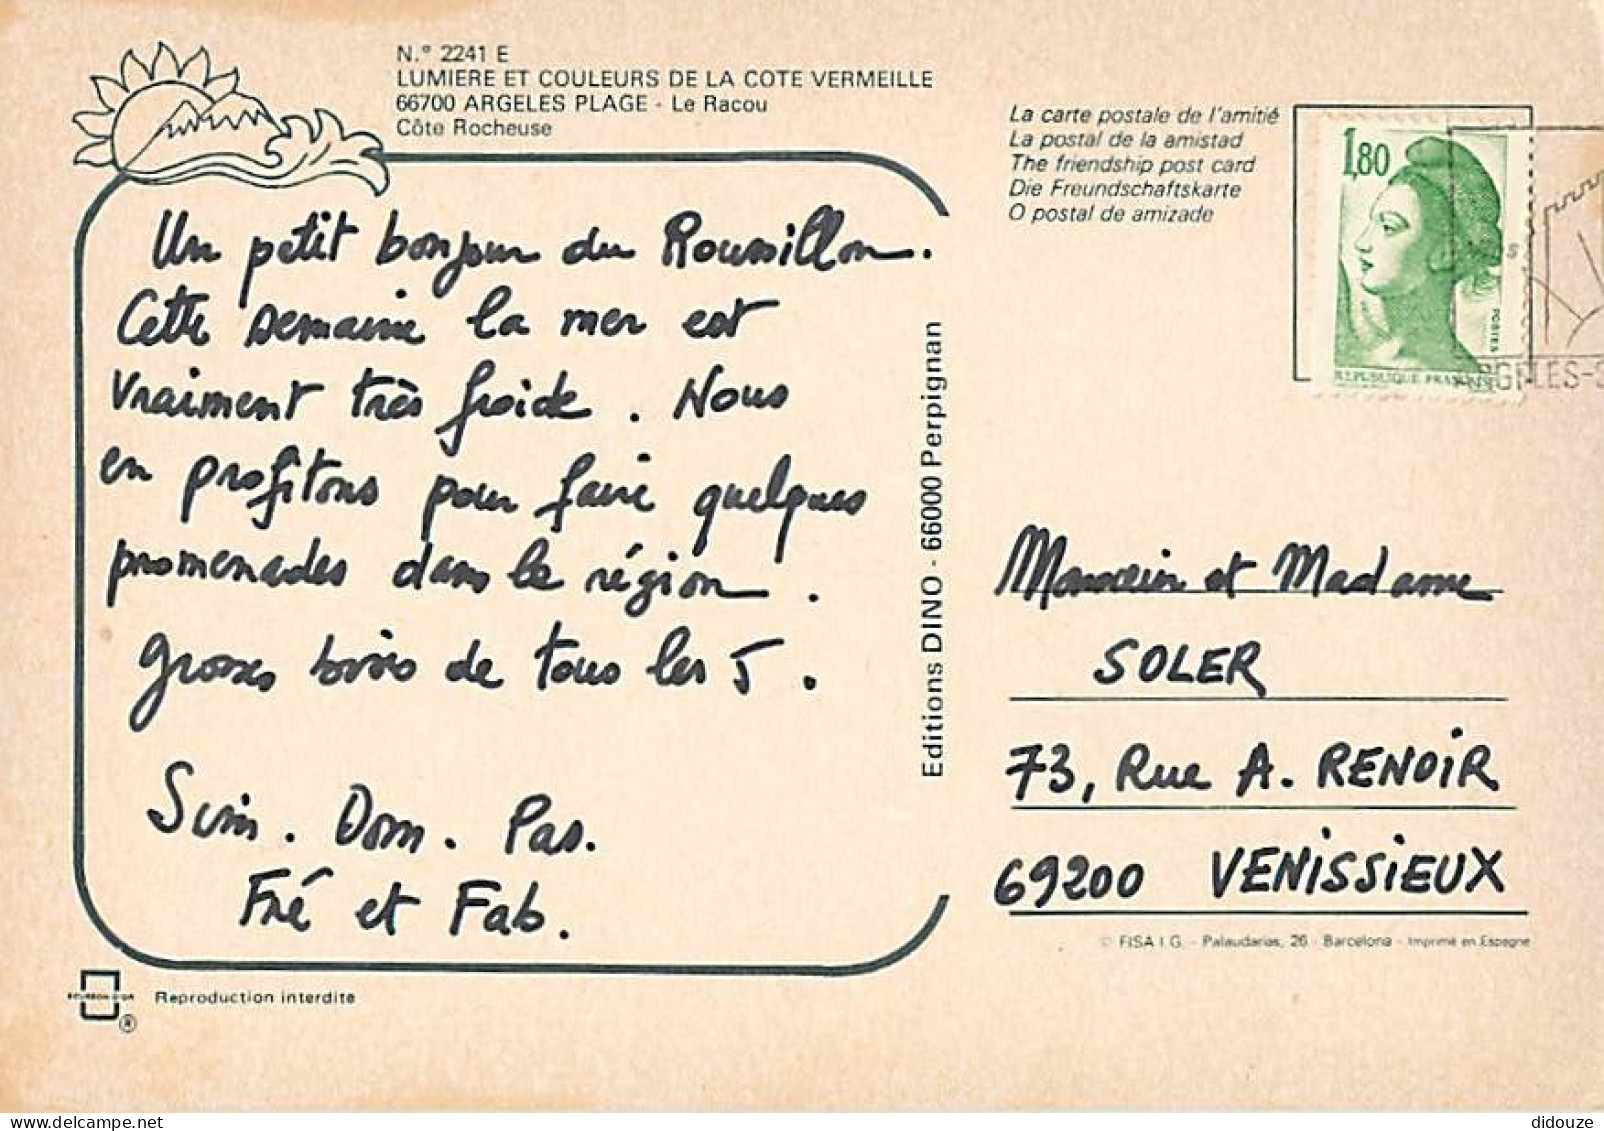 N.° 2241 E
LUMIERE ET COULEURS DE LA COTE VERMEILLE
66700 ARGELES PLAGE - Le Racou
Côte Rocheuse
Un petit bonjour du Roussillon.
Cette semaine la mer est
vraiment très froide. Nous
en profitons pour faire quelques
promenades dans la région.
Grosses bises de tous les 5.
Dom. Pas.
Fré et Fab.
Reproduction interdite
Editions DINO - 66000 Perpignan
La carte postale de l'amitié
La postal de la amistad
The friendship post card
Die Freundschaftskarte
O postal de amizade
1,80
POSTES
REPUBLIQUE FRANÇAISE
GELES-S
Monsieur et Madame
SOLER
73, Rue A. RENOIR
69200 VENISSIEUX
© FISA I.G. - Palaudarias, 26 - Barcelona - Imprimé en Espagne
didouze
delcampe.net